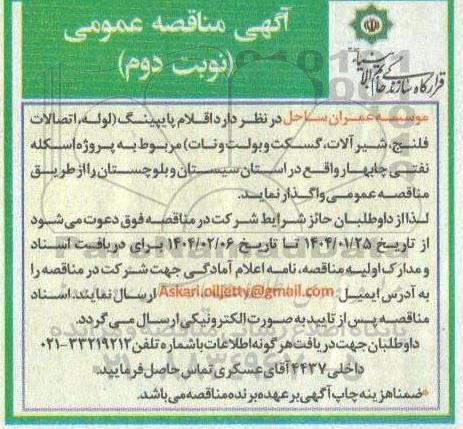 آگهی مناقصه عمومی
(نوبت دوم)
قرارگاه سازندگی خاتم الانبیاء
موسسه عمران ساحل در نظر دارد اقلام پایپینگ (لوله، اتصالات
فلنج، شیرآلات، گسکت و بولت و نات) مربوط به پروژه اسکله
نفتی چابهار واقع در استان سیستان و بلوچستان را از طریق
مناقصه عمومی واگذار نماید.
لذا از داوطلبان حائز شرایط شرکت در مناقصه فوق دعوت می‌شود
از تاریخ ۱۴۰۴/۰۱/۲۵ تا تاریخ ۱۴۰۴/۰۲/۰۶ برای دریافت اسناد
و مدارک اولیه مناقصه، نامه اعلام آمادگی جهت شرکت در مناقصه را
به آدرس ایمیل Askari.oiljetty@gmail.com ارسال نمایند. اسناد
مناقصه پس از تایید به صورت الکترونیکی ارسال می گردد.
داوطلبان جهت دریافت هرگونه اطلاعات با شماره تلفن ۳۳۲۱۹۲۱۲-۰۲۱
داخلی ۴۴۳۷ آقای عسکری تماس حاصل فرمایید.
*ضمنا هزینه چاپ آگهی بر عهده برنده مناقصه می‌باشد.